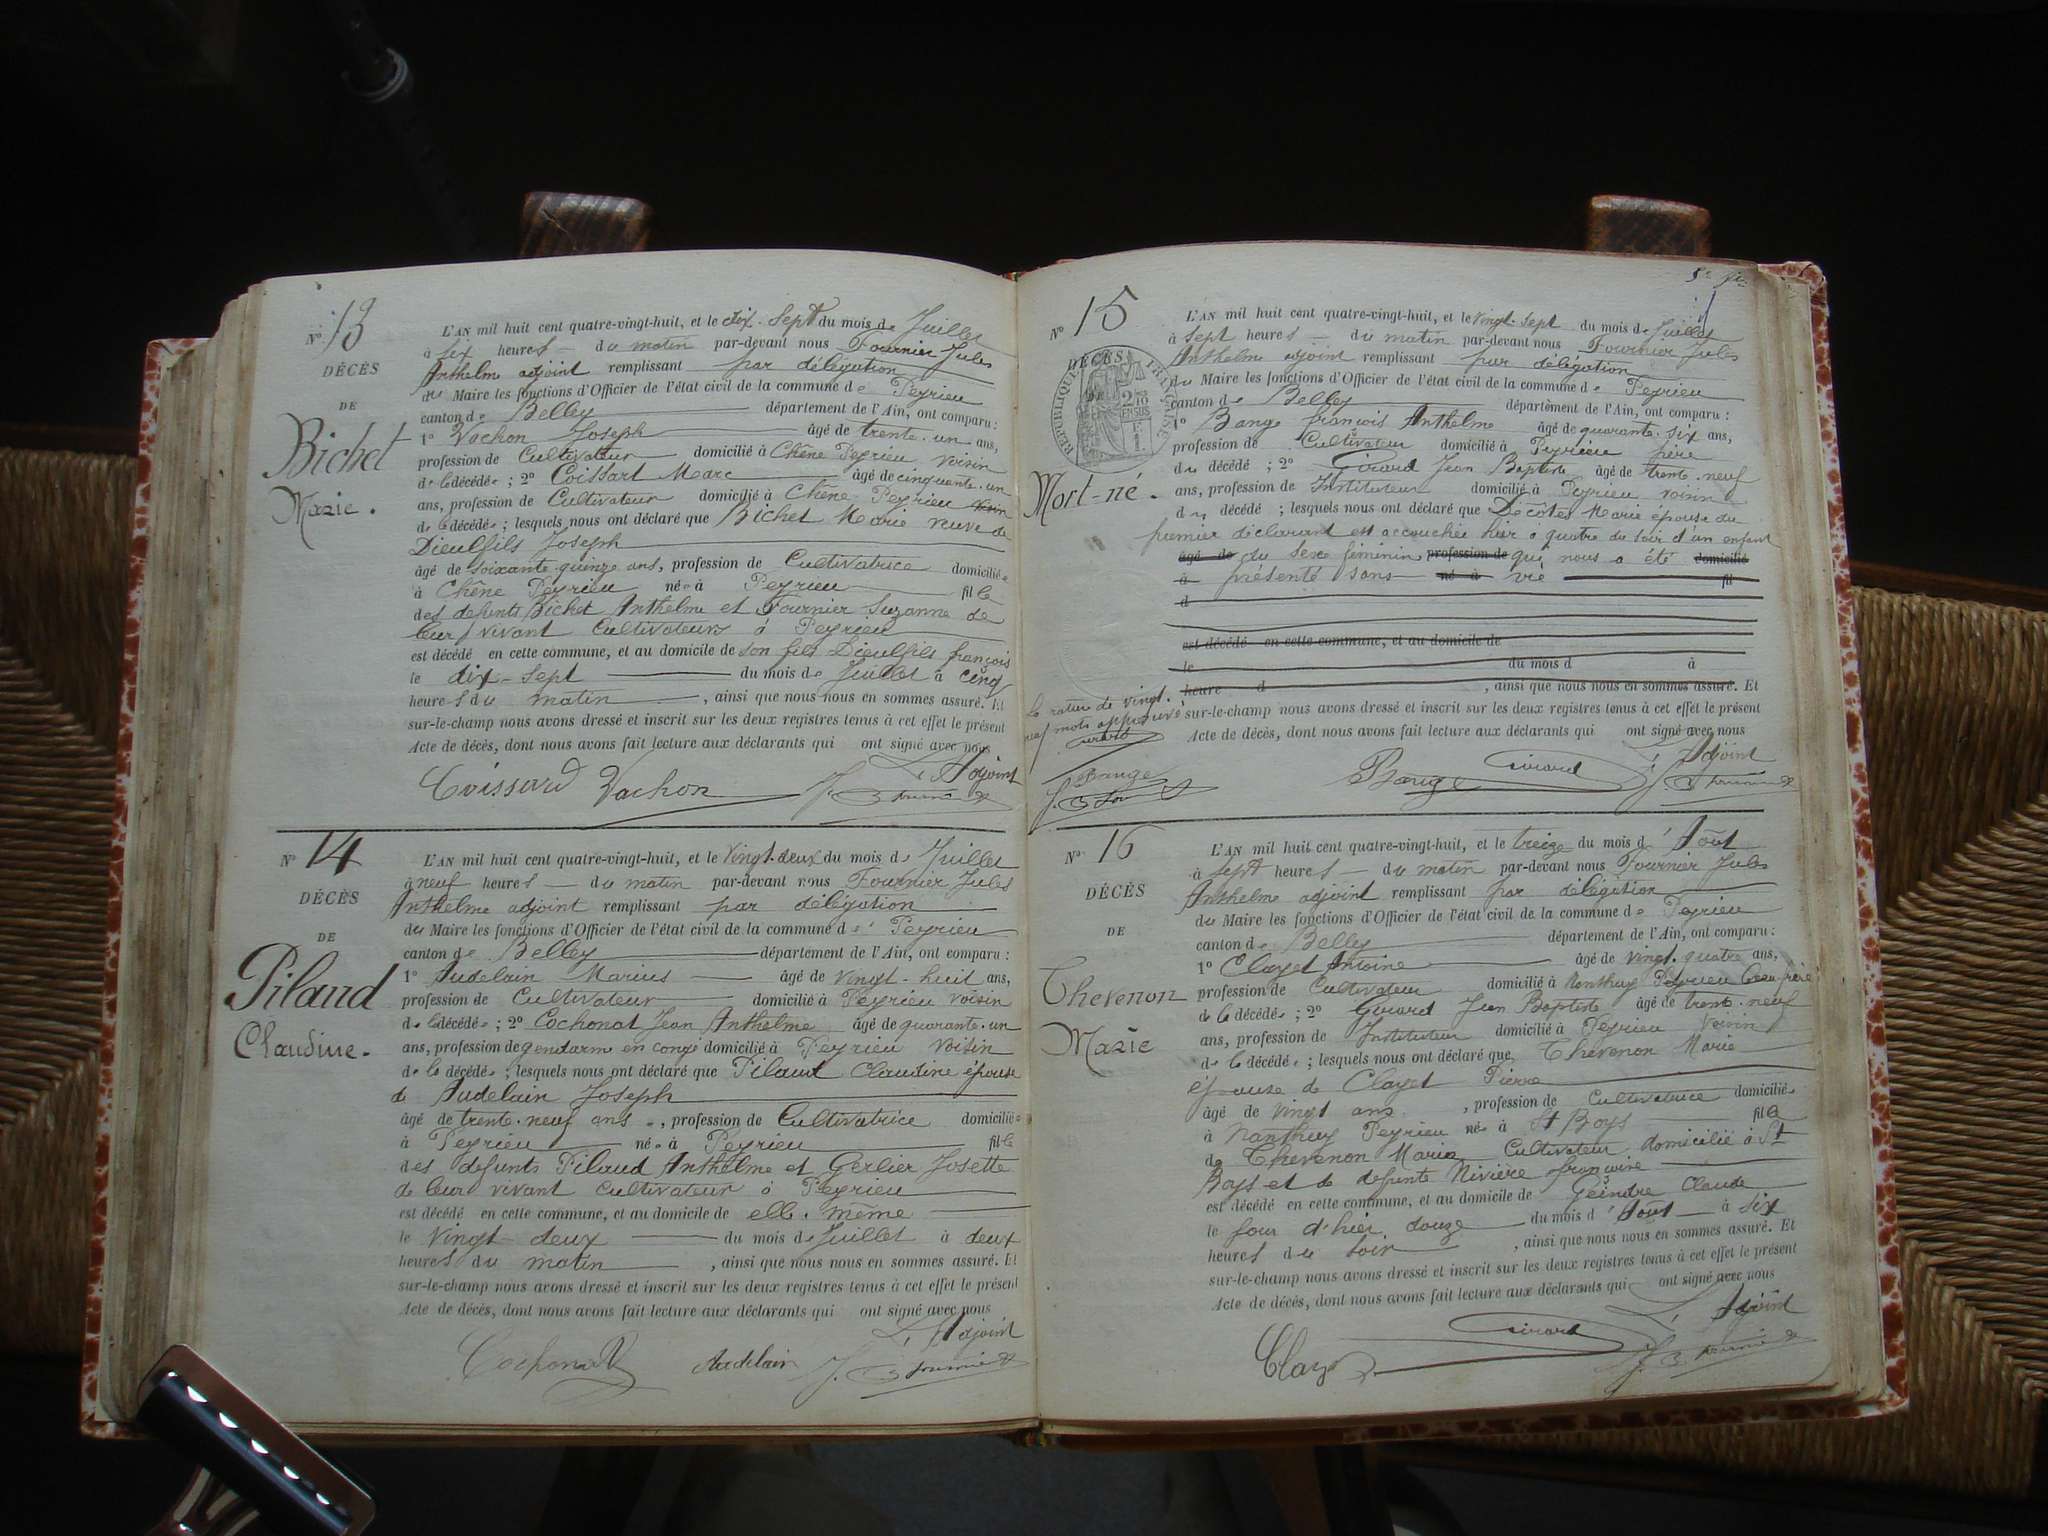 N° 13
DÉCÈS
DE
Bichet
Marie.
L'AN mil huit cent quatre-vingt-huit, et le dix-sept du mois de Juillet
à six heures du matin par-devant nous Fournier Jules
Anthelme adjoint remplissant par délégation
du Maire les fonctions d'Officier de l'état civil de la commune de Peyrieu
canton de Belley département de l'Ain, ont comparu :
1° Vachon Joseph âgé de trente-un ans,
profession de Cultivateur domicilié à Chêne Peyrieu voisin
de la décédée ; 2° Coissart Marc âgé de cinquante-un
ans, profession de Cultivateur domicilié à Chêne Peyrieu voisin
de la décédée ; lesquels nous ont déclaré que Bichet Marie veuve de
Dieulfils Joseph
âgé de soixante-quinze ans, profession de Cultivatrice domiciliée
à Chêne Peyrieu née à Peyrieu fille
des defunts Bichet Anthelme et Fournier Suzanne de
leur vivant Cultivateurs à Peyrieu
est décédé en cette commune, et au domicile de son fils Dieulfils françois
le dix-sept du mois de Juillet à cinq
heures du matin, ainsi que nous nous en sommes assuré. Et
sur-le-champ nous avons dressé et inscrit sur les deux registres tenus à cet effet le présent
Acte de décès, dont nous avons fait lecture aux déclarants qui ont signé avec nous
L'Adjoint
Coissard Vachon J. A Fournier
N° 14
DÉCÈS
DE
Pilaud
Claudine.
L'AN mil huit cent quatre-vingt-huit, et le vingt-deux du mois de Juillet
à neuf heures du matin par-devant nous Fournier Jules
Anthelme adjoint remplissant par délégation
du Maire les fonctions d'Officier de l'état civil de la commune de Peyrieu
canton de Belley département de l'Ain, ont comparu :
1° Audelain Marius âgé de vingt-huit ans,
profession de Cultivateur domicilié à Peyrieu voisin
de la décédée ; 2° Cochonat Jean Anthelme âgé de quarante-un
ans, profession de gendarme en congé domicilié à Peyrieu voisin
de la décédée ; lesquels nous ont déclaré que Pilaud Claudine épouse
de Audelain Joseph
âgé de trente-neuf ans, profession de Cultivatrice domiciliée
à Peyrieu née à Peyrieu fille
des defunts Pilaud Anthelme et Gerlier Josette
de leur vivant cultivateurs à Peyrieu
est décédé en cette commune, et au domicile de elle-même
le vingt deux du mois de Juillet à deux
heures du matin, ainsi que nous nous en sommes assuré. Et
sur-le-champ nous avons dressé et inscrit sur les deux registres tenus à cet effet le présent
Acte de décès, dont nous avons fait lecture aux déclarants qui ont signé avec nous
L'Adjoint
Cochonat Audelain J. A Fournier
N° 15
DÉCÈS
DE
RÉPUBLIQUE FRANÇAISE
Mort-né.
L'AN mil huit cent quatre-vingt-huit, et le vingt-sept du mois de Juillet
à sept heures du matin par-devant nous Fournier Jules
Anthelme adjoint remplissant par délégation
du Maire les fonctions d'Officier de l'état civil de la commune de Peyrieu
canton de Belley département de l'Ain, ont comparu :
1° Bange françois Anthelme âgé de quarante-six ans,
profession de Cultivateur domicilié à Peyrieu père
du décédé ; 2° Girard Jean Baptiste âgé de trente-neuf
ans, profession de Instituteur domicilié à Peyrieu voisin
du décédé ; lesquels nous ont déclaré que Decôtes Marie épouse du
premier déclarant est accouchée hier a quatre du soir d'un enfant
âgé de du sexe féminin profession de qui nous a été domicilié
à présenté sans né à vie fil
d
est décédé en cette commune, et au domicile de
le du mois d à
heure d , ainsi que nous nous en sommes assuré. Et
sur-le-champ nous avons dressé et inscrit sur les deux registres tenus à cet effet le présent
Acte de décès, dont nous avons fait lecture aux déclarants qui ont signé avec nous
la rature de vingt-
neuf mots approuvé
Girard
Bange
J. A Four
L'Adjoint
Bange Girard J. A Fournier
N° 16
DÉCÈS
DE
Thevenon
Marie
L'AN mil huit cent quatre-vingt-huit, et le treize du mois d'Août
à sept heures du matin par-devant nous Fournier Jules
Anthelme adjoint remplissant par délégation
du Maire les fonctions d'Officier de l'état civil de la commune de Peyrieu
canton de Belley département de l'Ain, ont comparu :
1° Clayet Antoine âgé de vingt-quatre ans,
profession de Cultivateur domicilié à Nanthuy Peyrieu beau frère
de la décédée ; 2° Girard Jean Baptiste âgé de trente-neuf
ans, profession de Instituteur domicilié à Peyrieu voisin
de la décédée ; lesquels nous ont déclaré que Thevenon Marie
épouse de Clayet Pierre
âgé de vingt ans, profession de Cultivatrice domiciliée
à Nanthuy Peyrieu née à St Boys fille
de Thevenon Marie Cultivateur domicilié à St
Boys et de defunte Nivière françoise
est décédé en cette commune, et au domicile de Geindre Claude
le jour d'hier douze du mois d'Aout à six
heures du soir, ainsi que nous nous en sommes assuré. Et
sur-le-champ nous avons dressé et inscrit sur les deux registres tenus à cet effet le présent
Acte de décès, dont nous avons fait lecture aux déclarants qui ont signé avec nous
L'Adjoint
Clayet Girard J. A Fournier